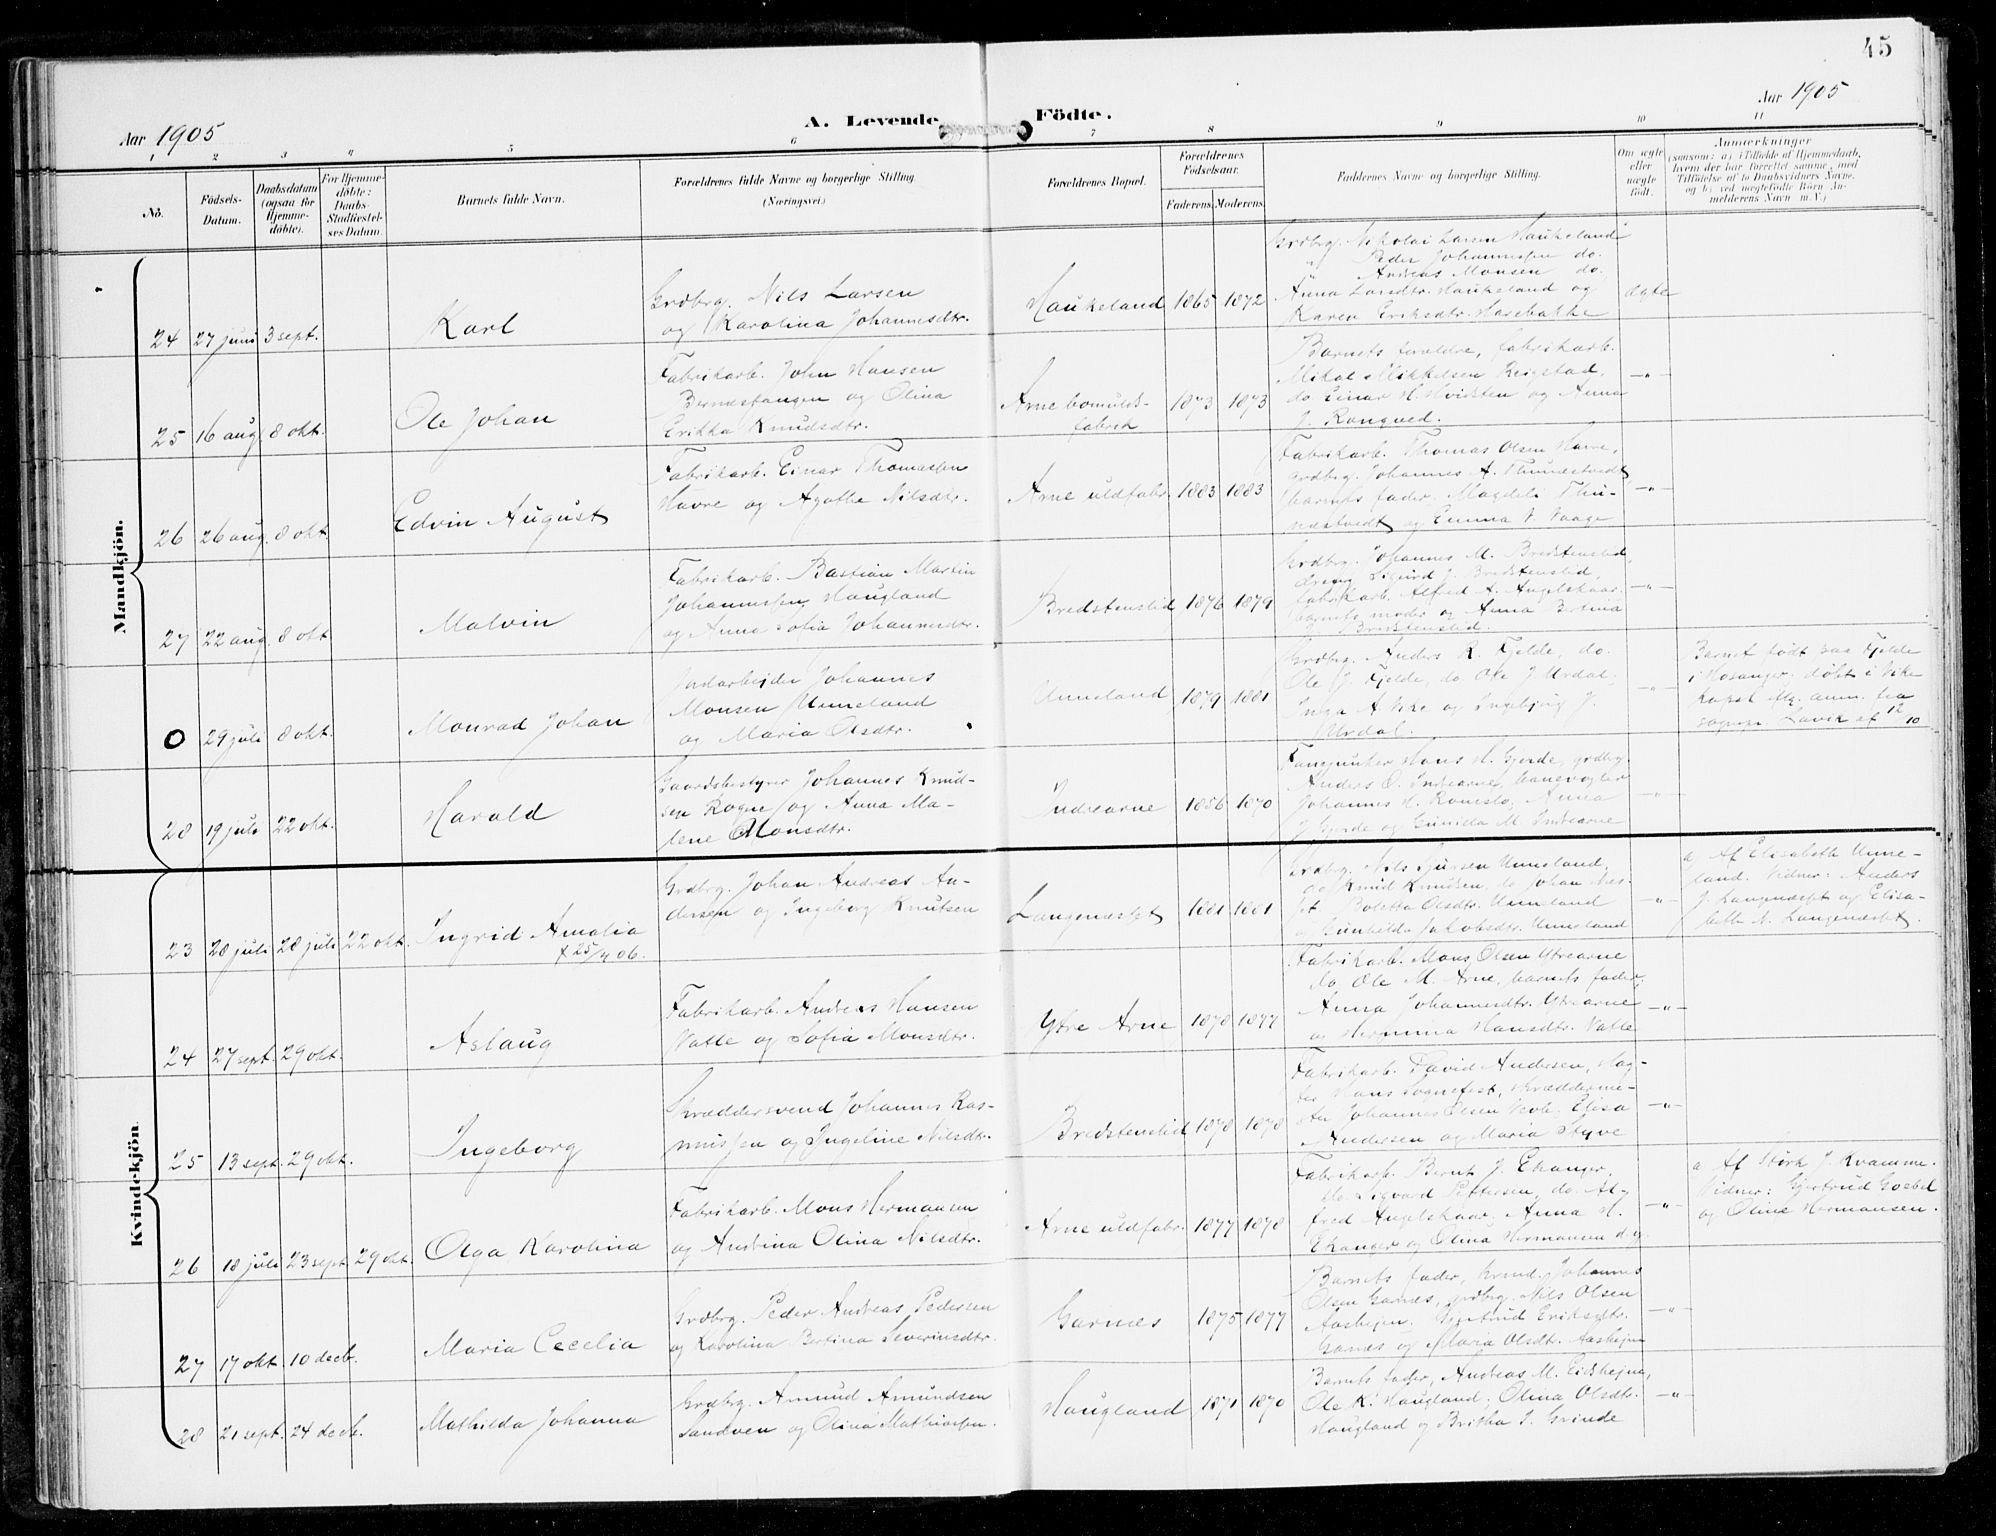 45
Aar 1905
A. Levende Födte.
Aar 1905
1 2 3 4 5 6 7 8 9 10 11
No.
Födsels-
Datum.
Daabsdatum
(ogsaa for
Hjemme-
döbte).
For Hjemme-
döbte:
Daabs-
Stadfæstel-
ses Datum.
Barnets fulde Navn.
Forældrenes fulde Navne og borgerlige Stilling.
(Næringsvei.)
Forældrenes Bopæl.
Forældrenes
Födselsaar.
Faderens. Moderens.
Faddernes Navne og borgerlige Stilling.
Om ægte
eller
uægte
födt.
Anmærkninger
(saasom: a) i Tilfælde af Hjemmedaab,
hvem der har forrettet samme, med
Tilföielse af to Daabsvidners Navne,
og b) ved uægtefödte Börn An-
melderens Navn m. V.)
Mandkjön.
24 27 juni 3 sept.
Karl
Grdbrg. Nils Larsen
og Karolina Johannesdtr.
Haukeland 1865 1872
Grdbrg. Nikolai Larsen Haukeland
" Peder Johannessen do.
" Andreas Monsen do.
Anna Larsdtr. Haukeland og
Karen Eriksdtr. Hasebakke
ægte
25 16 aug 8 okt.
Ole Johan
Fabrikarb. John Hansen
Bernæstangen og Olina
Erikka Knudsdtr.
Arne bomulds-
fabrik
1873 1873
Barnets forældre, fabrikarb.
Mikal Mikkelsen Reigstad,
do Einar H. Hvidsten og Anna
J. Rongved.
—"—
26 26 aug. 8 okt.
Edvin August
Fabrikarb. Einar Thomassen
Havre og Agathe Nilsdtr.
Arne uldfabr. 1883 1883
Fabrikarb. Thomas Olsen Havre,
grdbrg. Johannes A. Thunestvedt
barnets fader, Magdeli Thu-
næstvedt og Emma V. Vaage
—"—
27 22 aug. 8 okt
Malvin
Fabrikarb. Bastian Martin
Johannessen Haugland
og Anna Sofia Johannesdtr.
Bredstenslid 1876 1879
Grdbrg. Johannes M. Bredstenslid,
dreng Sigurd J. Bredstenslid,
fabrikarb. Alfred A. Angelskaar,
barnets moder og Anna Bertina
Bredstenslid.
—"—
0 29 juli 8 okt.
Monrad Johan
Jordarbejder Johannes
Monsen Unneland
og Maria Olsdtr.
Unneland 1879 1881
Grdbrg. Anders R. Fjelde, do.
Ole J. Fjelde, do Ole J. Urdal,
Inga A. Vike og Ingebjørg J.
Urdal.
—"—
Barnet født paa Fjelde
i Mosanger, døbt i Vike
kapel iflg. anm. fra
sognepr. Lavik af 12/10
28 19 juli 22 okt.
Harald
Gaardsbestyrer Johannes Knud-
sen Rogne og Anna Ma-
lene Monsdtr.
Indrearne 1856 1870
Fanejunker Hans H. Gjerde, grdbrg.
Anders O. Indrearne, banevogter
Johannes H. Romslo, Anna
J. Gjerde og Gunilda M. Indrearne
—"—
Kvindekjön.
23 28 juli 28 juli 22 okt.
Ingrid Amalia
+ 25/4 06.
Grdbrg. Johan Andreas An-
dersen og Ingeborg Knutsen
Langenæstet 1881 1881
Grdbrg. Nils Sjursen Unneland,
do Knud Knudsen, do Johan Næs-
set. Boletta Olsdtr. Unneland
og Gunhilda Jakobsdtr. Unneland
—"—
a. Af Elisabeth Unne-
land. Vidner: Anders
J. Langenæset og Elisa-
beth N. Langenæset.
24 27 sept. 29 okt.
Aslaug
Fabrikarb. Andreas Hansen
Valle og Sofia Monsdtr.
Ytre Arne 1878 1877
Fabrikarb. Mons Olsen Ytrearne
do. Ole M. Arne, barnets fader,
Anna Johannesdtr. Ytrearne
og Hermina Hansdtr. Valle
—"—
25 13 sept. 29 okt.
Ingeborg
Skræddersvend Johannes Ras-
mussen og Ingeline Nilsdtr.
Bredstenslid 1878 1878
Fabrikarb. David Andersen, Mag-
ter Hans Sognefest, skrædderme-
ster Johannes Olsen Veole, Elisa
Andersen og Maria Styve
—"—
26 18 juli 23 sept. 29 okt.
Olga Karolina
Fabrikarb. Mons Hermansen
og Antina Olina Nilsdtr.
Arne uldfabr. 1877 1878
Fabrikarb. Bernt J. Ekanger,
do. Sigvard Pettersen, do. Al-
fred Angelskaar, Anna H.
Ekanger og Olina Hermansen d.y.
—"—
a Af Størk J. Kvamme.
Vidner: Gjertrud Goebel
og Oline Hermansen.
27 17 okt 10 decb.
Maria Cecelia
Grdbrg. Peder Andreas Pedersen
og Karolina Bertina Severinsdtr.
Garnæs 1875 1877
Barnets fader, Krmd. Johannes
Olsen Garnæs, grdbrg. Nils Olsen
Aashejm. Gjertrud Eriksdtr.
Garnæs og Maria Olsdtr. Aashejm
—"—
28 21 sept. 24 decb.
Mathilda Johanna
Grdbrg. Amund Amundsen
Sandven og Olina Mathiassen.
Haugland 1871 1870
Barnets fader, Andreas M. Eidshejm,
Ole K. Haugland, Olina Olsdtr.
Haugland og Britha J. Grinde
—"—